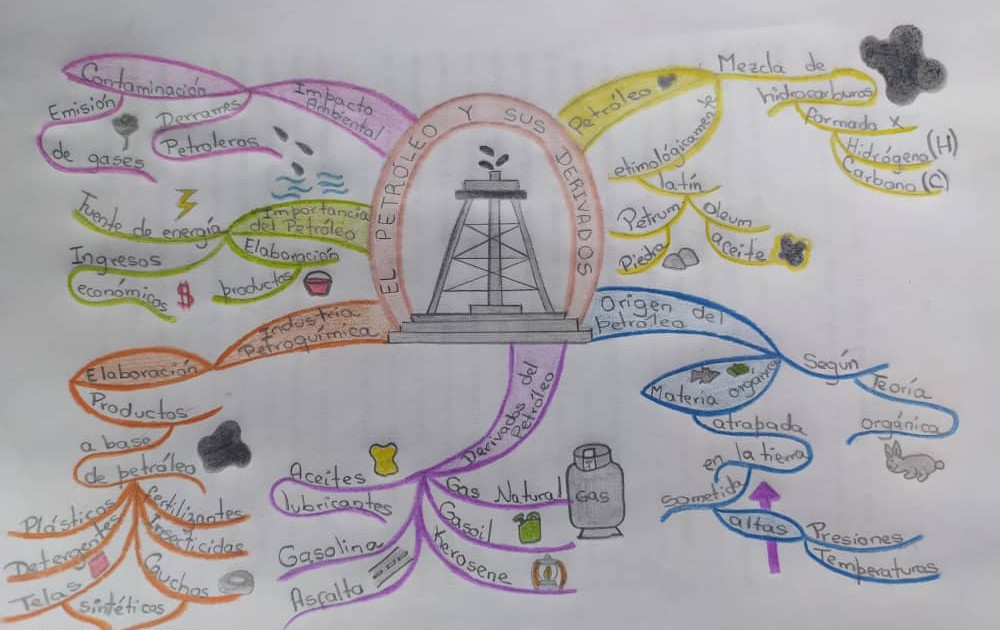 EL PETRÓLEO Y SUS DERIVADOS
Petróleo
Mezcla de
hidrocarburos
formada x
Hidrógeno (H)
Carbono (C)
etimológicamen
latín
Petrum
Piedra
Oleum
aceite
Origen del
Petróleo
Según
Teoría
orgánica
Materia orgánica
atrapada
en la tierra
sometida
altas
Presiones
Temperaturas
Derivados del
Petróleo
Gas Natural
GAS
Gasoil
Kerosene
Aceites
lubricantes
Gasolina
Asfalto
Industria
Petroquímica
Elaboración
Productos
a base
de petróleo
Fertilizantes
Insecticidas
Cauchos
Plásticos
Detergentes
Telas
sintéticos
Importancia
del Petróleo
Fuente de energía
Ingresos
económicos
$
Elaboración
productos
Impacto
Ambiental
Contaminación
Emisión
de gases
Derrames
Petroleros